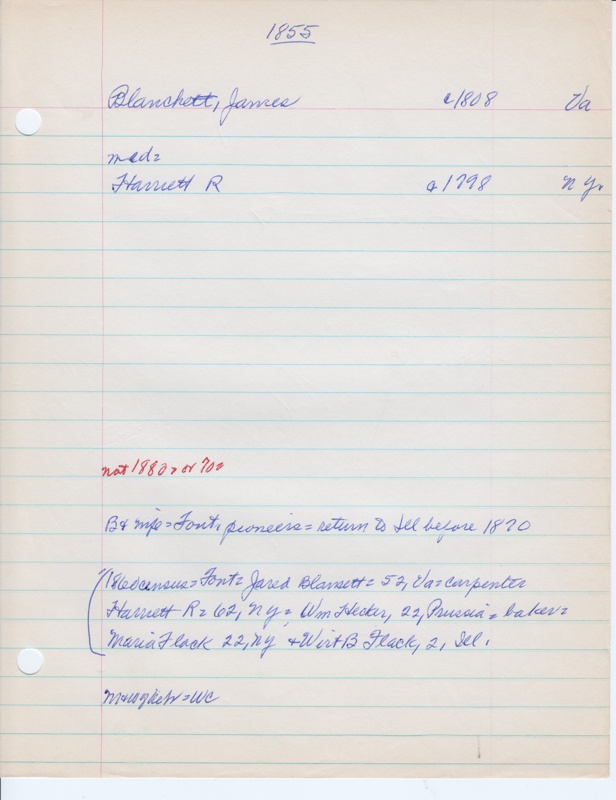 1855
Blanchett, James c1808 Va
md=
Harriett R c1798 N Y.
not 1880= or 70=
B& wife = Font, pioneers = return to Ill before 1870
1860 census = Font = Jared Blansett = 52, Va = carpenter
Harriett R = 62, NY = Wm Hecker, 22, Prussia = baker =
Maria Flack 22, NY & Wirt B Flack, 2, Ill.
= WC